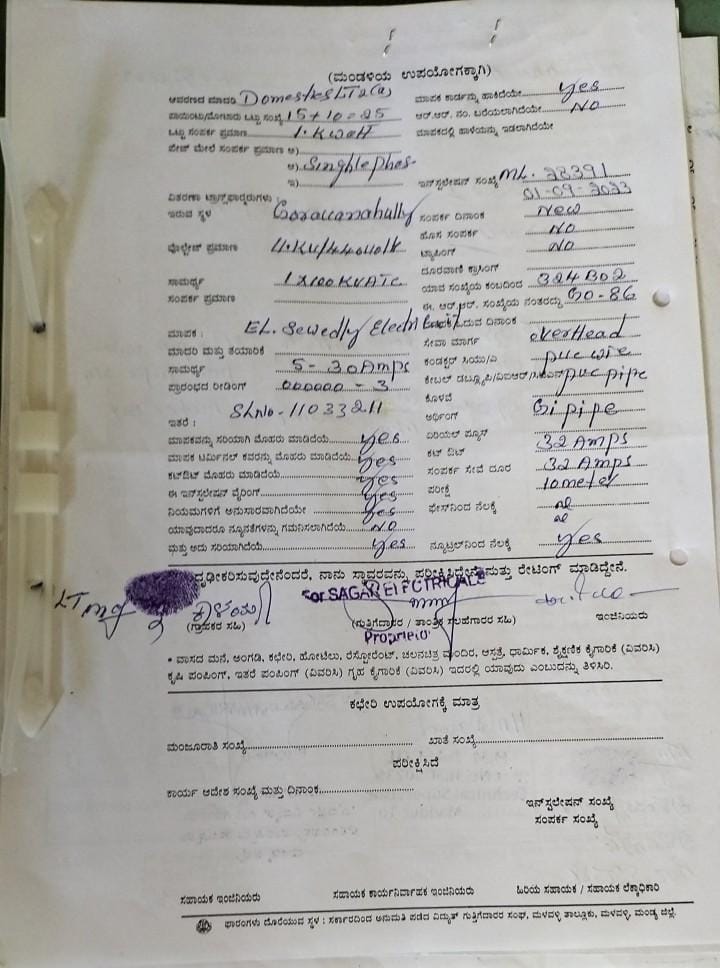 (ಮಂಡಳಿಯ ಉಪಯೋಗಕ್ಕಾಗಿ)
ಆವರಣದ ಮಾದರಿ Domestic LT2(a) ಮಾಪಕ ಕಾರ್ಡನ್ನು ಹಾಕಿದೆಯೇ Yes
ಪಾಯಿಂಟು/ಮೋಟಾರು ಒಟ್ಟು ಸಂಖ್ಯೆ 15+10=25 ಆರ್.ಆರ್. ನಂ. ಬರೆಯಲಾಗಿದೆಯೇ NO
ಒಟ್ಟು ಸಂಪರ್ಕ ಪ್ರಮಾಣ 1. Kwatt ಮಾಪಕದಲ್ಲಿ ಹಾಳೆಯನ್ನು ಇಡಲಾಗಿದೆಯೇ
ಪೇಜ್ ಮೇಲೆ ಸಂಪರ್ಕ ಪ್ರಮಾಣ ಅ)
ಆ) Singhlephas
ಇ) ಇನ್‌ಸ್ಟಲೇಷನ್ ಸಂಖ್ಯೆ ML. 28391
ವಿತರಣಾ ಟ್ರಾನ್ಸ್‌ಫಾರ್ಮರುಗಳು : 01-09-2023
ಇರುವ ಸ್ಥಳ ಸಂಪರ್ಕ ದಿನಾಂಕ New
ಹೊಸ ಸಂಪರ್ಕ NO
ವೋಲ್ಟೇಜ್ ಪ್ರಮಾಣ ಟ್ಯಾಪಿಂಗ್ NO
ದೂರವಾಣಿ ಕ್ರಾಸಿಂಗ್
ಸಾಮರ್ಥ್ಯ 1X100KVATC ಯಾವ ಸಂಖ್ಯೆಯ ಕಂಬದಿಂದ 324B02
ಸಂಪರ್ಕ ಪ್ರಮಾಣ ಈ. ಆರ್.ಆರ್. ಸಂಖ್ಯೆಯ ನಂತರದ್ದು GO-86
ಮಾಪಕ : EL. Sewedly Electric ದಿನಾಂಕ
ಮಾದರಿ ಮತ್ತು ತಯಾರಿಕೆ ಸೇವಾ ಮಾರ್ಗ overHead
ಸಾಮರ್ಥ್ಯ 5-30Amps ಕಂಡಕ್ಟರ್ ಸಿಯು/ಎ puc wire
ಪ್ರಾರಂಭದ ರೀಡಿಂಗ್ 000000-3 ಕೇಬಲ್ puc pipe
SLno-11033211 ಕೊಳವೆ
ಇತರೆ : ಅರ್ಥಿಂಗ್ Gi pipe
ಮಾಪಕವನ್ನು ಸರಿಯಾಗಿ ಮೊಹರು ಮಾಡಿದೆಯೆ Yes ಏರಿಯಲ್ ಪ್ಯೂಸ್
ಮಾಪಕ ಟರ್ಮಿನಲ್ ಕವರನ್ನು ಮೊಹರು ಮಾಡಿದೆಯೆ Yes ಕಟ್ ಔಟ್ 32 Amps
ಕಟ್‌ಔಟ್ ಮೊಹರು ಮಾಡಿದೆಯೆ Yes ಸಂಪರ್ಕ ಸೇವೆ ದೂರ 32 Amps
ಈ ಇನ್‌ಸ್ಟಲೇಷನ್ ವೈರಿಂಗ್ Yes ಪರೀಕ್ಷೆ 10 meter
ನಿಯಮಗಳಿಗೆ ಅನುಸಾರವಾಗಿದೆಯೇ Yes ಫೇಸ್‌ನಿಂದ ನೆಲಕ್ಕೆ
ಯಾವುದಾದರೂ ನ್ಯೂನತೆಗಳನ್ನು ಗಮನಿಸಲಾಗಿದೆಯೆ NO
ಮತ್ತು ಅದು ಸರಿಯಾಗಿದೆಯೆ Yes ನ್ಯೂಟ್ರಲ್‌ನಿಂದ ನೆಲಕ್ಕೆ Yes
ದೃಢೀಕರಿಸುವುದೇನೆಂದರೆ, ನಾನು ಸ್ಥಾವರವನ್ನು ಪರೀಕ್ಷಿಸಿದ್ದೇನೆ ಮತ್ತು ರೇಟಿಂಗ್ ಮಾಡಿದ್ದೇನೆ.
For SAGAR ELECTRICALS
(ಗ್ರಾಹಕರ ಸಹಿ) (ಗುತ್ತಿಗೆದಾರರ / ತಾಂತ್ರಿಕ ಸಲಹೆಗಾರರ ಸಹಿ) ಇಂಜಿನಿಯರು
Proprietor
* ವಾಸದ ಮನೆ, ಅಂಗಡಿ, ಕಛೇರಿ, ಹೋಟೆಲು, ರೆಸ್ಟೋರೆಂಟ್, ಚಲನಚಿತ್ರ ಮಂದಿರ, ಆಸ್ಪತ್ರೆ, ಧಾರ್ಮಿಕ, ಶೈಕ್ಷಣಿಕ ಕೈಗಾರಿಕೆ (ವಿವರಿಸಿ)
ಕೃಷಿ ಪಂಪಿಂಗ್, ಇತರೆ ಪಂಪಿಂಗ್ (ವಿವರಿಸಿ) ಗೃಹ ಕೈಗಾರಿಕೆ (ವಿವರಿಸಿ) ಇದರಲ್ಲಿ ಯಾವುದು ಎಂಬುದನ್ನು ತಿಳಿಸಿರಿ.
ಕಛೇರಿ ಉಪಯೋಗಕ್ಕೆ ಮಾತ್ರ
ಮಂಜೂರಾತಿ ಸಂಖ್ಯೆ ಖಾತೆ ಸಂಖ್ಯೆ
ಪರೀಕ್ಷಿಸಿದೆ
ಕಾರ್ಯ ಆದೇಶ ಸಂಖ್ಯೆ ಮತ್ತು ದಿನಾಂಕ
ಇನ್‌ಸ್ಟಲೇಷನ್ ಸಂಖ್ಯೆ
ಸಂಪರ್ಕ ಸಂಖ್ಯೆ
ಸಹಾಯಕ ಇಂಜಿನಿಯರು ಸಹಾಯಕ ಕಾರ್ಯನಿರ್ವಾಹಕ ಇಂಜಿನಿಯರು ಹಿರಿಯ ಸಹಾಯಕ / ಸಹಾಯಕ ಲೆಕ್ಕಾಧಿಕಾರಿ
ಫಾರಂಗಳು ದೊರೆಯುವ ಸ್ಥಳ : ಸರ್ಕಾರದಿಂದ ಅನುಮತಿ ಪಡೆದ ವಿದ್ಯುತ್ ಗುತ್ತಿಗೆದಾರರ ಸಂಘ, ಮಳವಳ್ಳಿ ತಾಲ್ಲೂಕು, ಮಳವಳ್ಳಿ, ಮಂಡ್ಯ ಜಿಲ್ಲೆ.